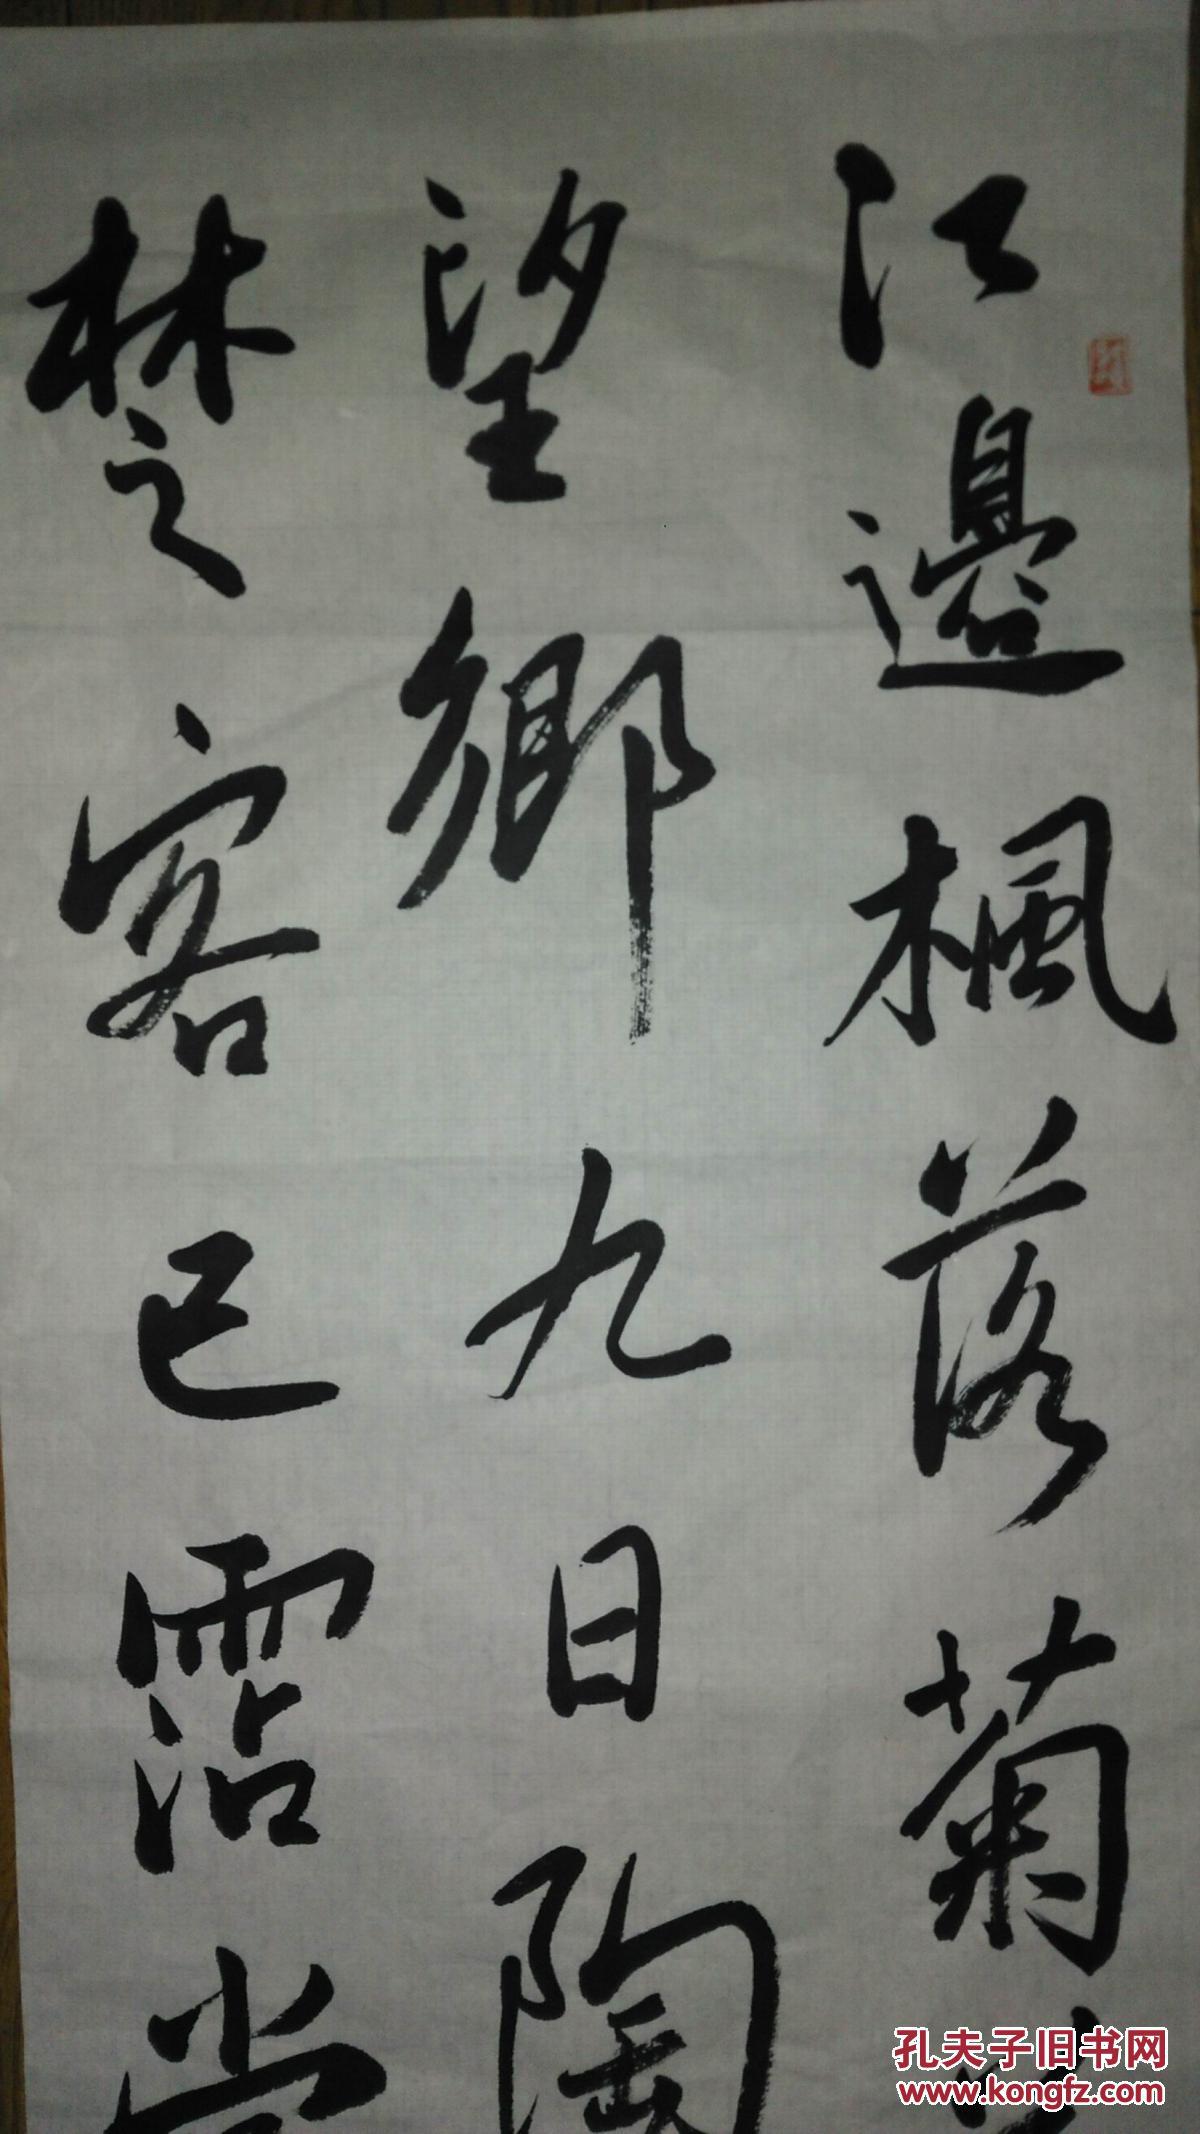 江邊楓落菊
望鄉九日陶
楚客已霑裳
孔夫子旧书网
www.kongfz.com